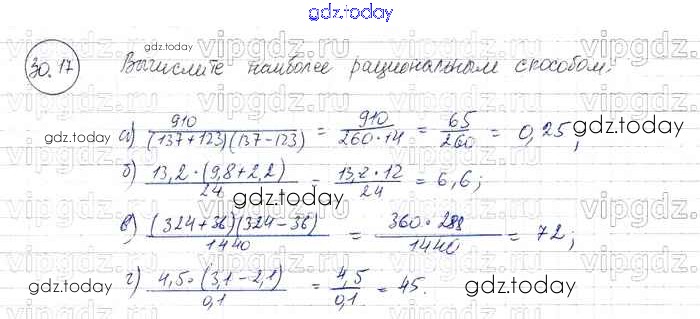 gdz.today
30.17 Вычислите наиболее рациональным способом:
а) 910/((137+123)(137-123)) = 910/(260·14) = 65/260 = 0,25;
б) (13,2·(9,8+2,2))/24 = (13,2·12)/24 = 6,6;
в) ((324+36)(324-36))/1440 = (360·288)/1440 = 72;
г) (4,5·(3,1-2,1))/0,1 = 4,5/0,1 = 45.
gdz.today
gdz.today
gdz.today
gdz.today
gdz.today
gdz.today
gdz.today
vipgdz.ru